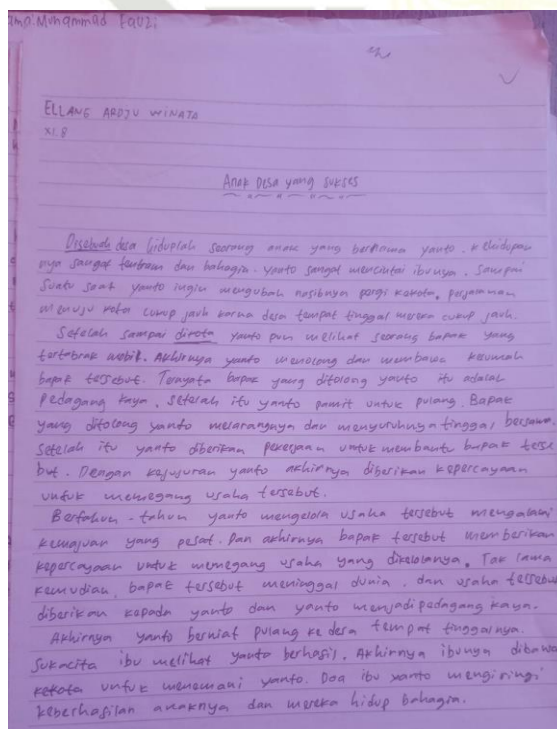 Muhammad Fauzi
ELLANG ARDJU WINATA
XI.8
Anak Desa yang sukses
Disebuah desa hiduplah seorang anak yang bernama yanto. kehidupan
nya sangat tentram dan bahagia. yanto sangat mencintai ibunya. Sampai
suatu saat yanto ingin mengubah nasibnya pergi kekota. perjalanan
menuju kota cukup jauh karna desa tempat tinggal mereka cukup jauh.
Setelah sampai dikota yanto pun melihat seorang bapak yang
tertabrak mobil. Akhirnya yanto menolong dan membawa kerumah
bapak tersebut. Teryata bapak yang ditolong yanto itu adalah
Pedagang kaya. setelah itu yanto pamit untuk pulang. Bapak
yang ditolong yanto melarangnya dan menyuruhnya tinggal bersama.
setelah itu yanto diberikan pekerjaan untuk membantu bapak terse
but. Dengan kejujuran yanto akhirnya diberikan kepercayaan
untuk memegang usaha tersebut.
Bertahun-tahun yanto mengelola usaha tersebut mengalami
kemajuan yang pesat. Dan akhirnya bapak tersebut memberikan
kepercayaan untuk memegang usaha yang dikelolanya. Tak lama
kemudian, bapak tersebut meninggal dunia, dan usaha tersebut
diberikan kepada yanto dan yanto menjadi pedagang kaya.
Akhirnya yanto berniat pulang ke desa tempat tinggalnya.
Sukacita ibu melihat yanto berhasil. Akhirnya ibunya dibawa
kekota untuk menemani yanto. Doa ibu yanto mengiringi
keberhasilan anaknya dan mereka hidup bahagia.